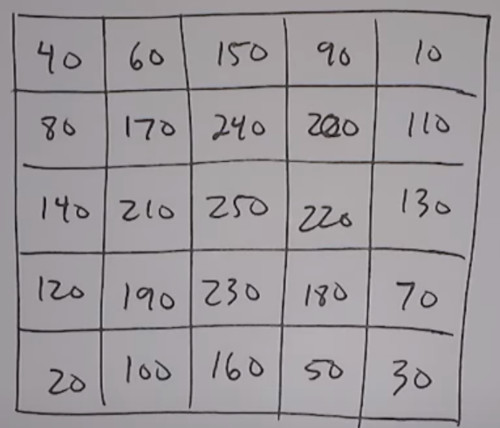 40 60 150 90 10
80 170 240 200 110
140 210 250 220 130
120 190 230 180 70
20 100 160 50 30